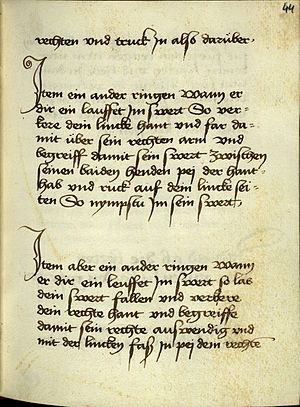 44
rechten vnd truck jn also darüber.
Item ein ander ringen Wann er
dir ein lauffet jm swert So ver-
kere dein lincke hant vnd far da-
mit über sein rechten arm vnd
begreiff damit sein swert zwischen
seinen baiden henden pej der hant-
hab vnd ruck auf dein lincke sei-
ten So nympstu jm sein swert.
Item aber ein ander ringen Wann
er dir ein leuffet jm swert so las
dein swert fallen vnd verkere
dein rechte hant vnd begreiffe
damit sein rechte auswendig vnd
mit der lincken faß in pei dem rechte